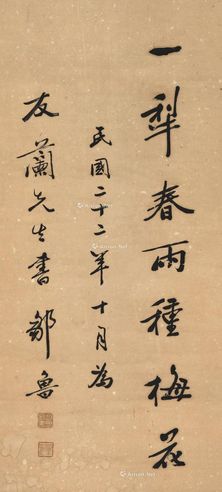 一犁春雨種梅花
民國二十二年十月為
友蘭先生書 鄒魯